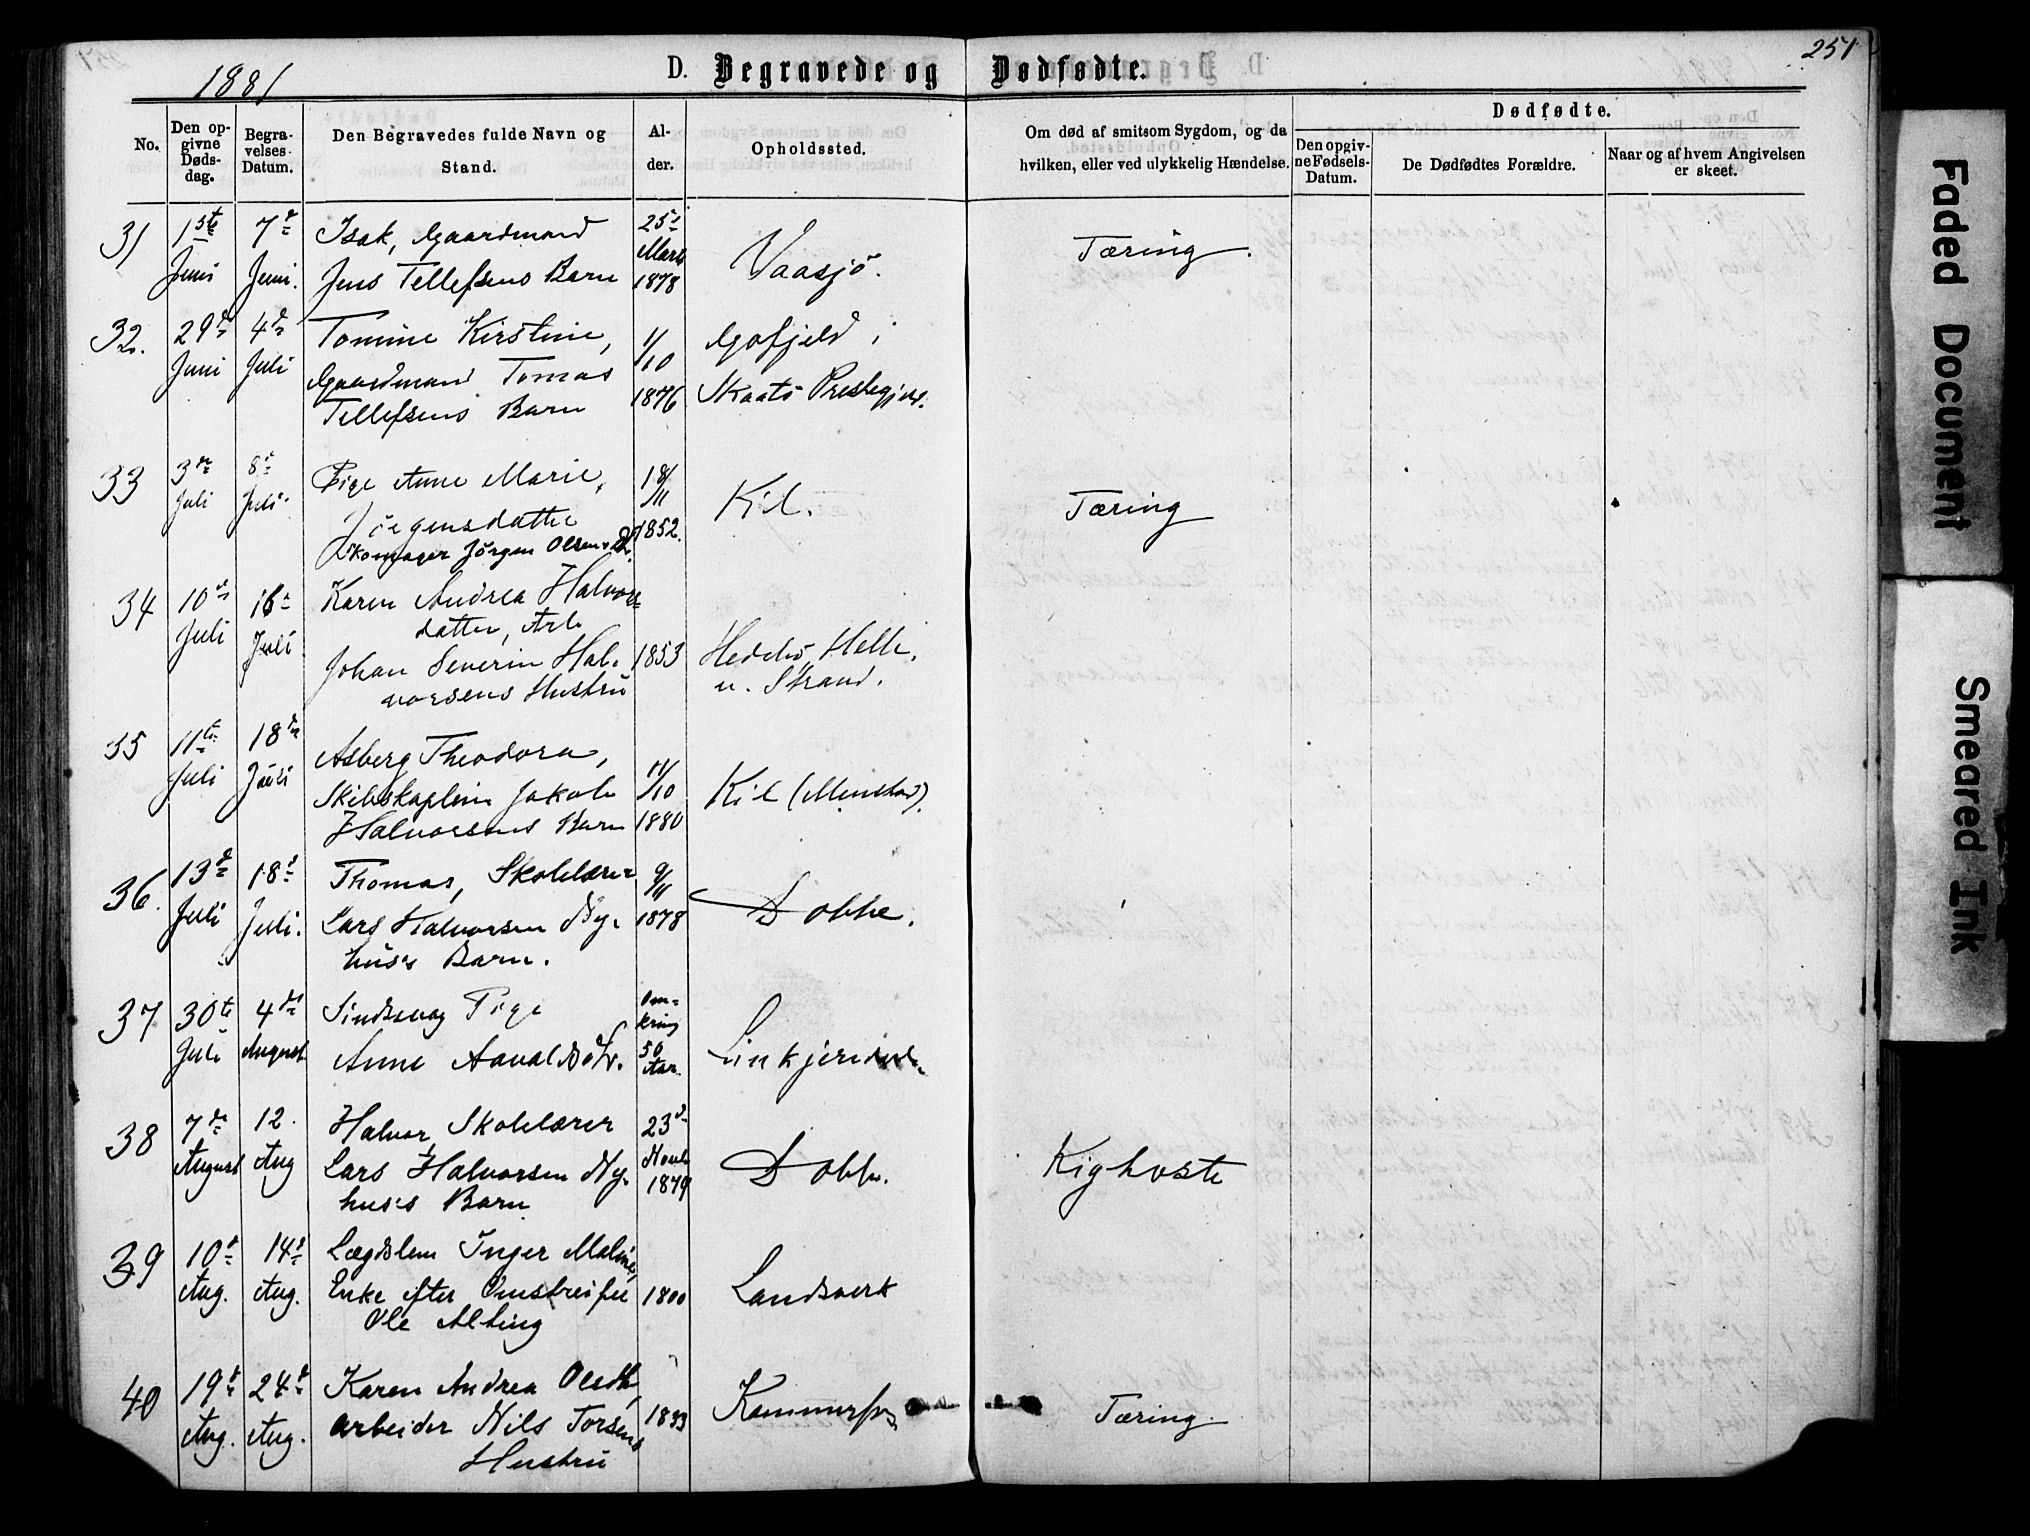 1881
D. Begravede og Dødfødte.
251
No.
Den opgivne Dødsdag.
Begravelses-Datum.
Den Begravedes fulde Navn og Stand.
Alder.
Opholdssted.
Om død af smitsom Sygdom, og da hvilken, eller ved ulykkelig Hændelse.
Dødfødte.
Den opgivne Fødsels-Datum.
De Dødfødtes Forældre.
Naar og af hvem Angivelsen er skeet.
31 1ste Juni 7de Juni. Isak, Gaardmand
Jens Tellefsens Barn
25de Marts 1878
Vaasjö.
Tæring.
32. 29de Juni 4de Juli Tomine Kirstine,
Gaardmand Tomas
Tellefsens Barn
11/10 1876
Gofjeld i
Skaatö Prestegjeld.
33 3die Juli 8de Juli. Pige Anne Marie,
Jörgensdatter
Skomager Jörgen Olsens
18/11 1852.
Kil.
Tæring
34 10de Juli 16de Juli Karen Andrea Halvors-
datter, Arb
Johan Severin Hal-
vorsens Hustru
1853
Helle,
u. Strand.
35 11te Juli 18de Juli Asberg Theodora,
Skibskaptein Jakob
Halvorsens Barn
11/10 1880
Kil (Menstad).
36. 13de Juli 18de Juli. Thomas, Skolelærer
Lars Halvorsen Ny-
hus's Barn.
9/11 1878
Dobbe.
37 30te Juli 4de August Sindssvag Pige
Anne Aavaldsdtr.
Omkring 50 Aar.
38 7de August 12. Aug Halvor, Skolelærer
Lars Halvorsen Ny-
hus's Barn
23de Novb 1879
Dobbe.
Kighoste
39 10de Aug. 14de Aug. Lægdslem Inger Maline,
Enke efter Omstreifer
Ole Alting
1800
Landsverk
40 19de Aug. 24de Aug. Karen Andrea Olsdtr,
arbeider Nils Torsens
Hustru
1833
Kammerfos
Tæring.
Faded Document
Smeared Ink